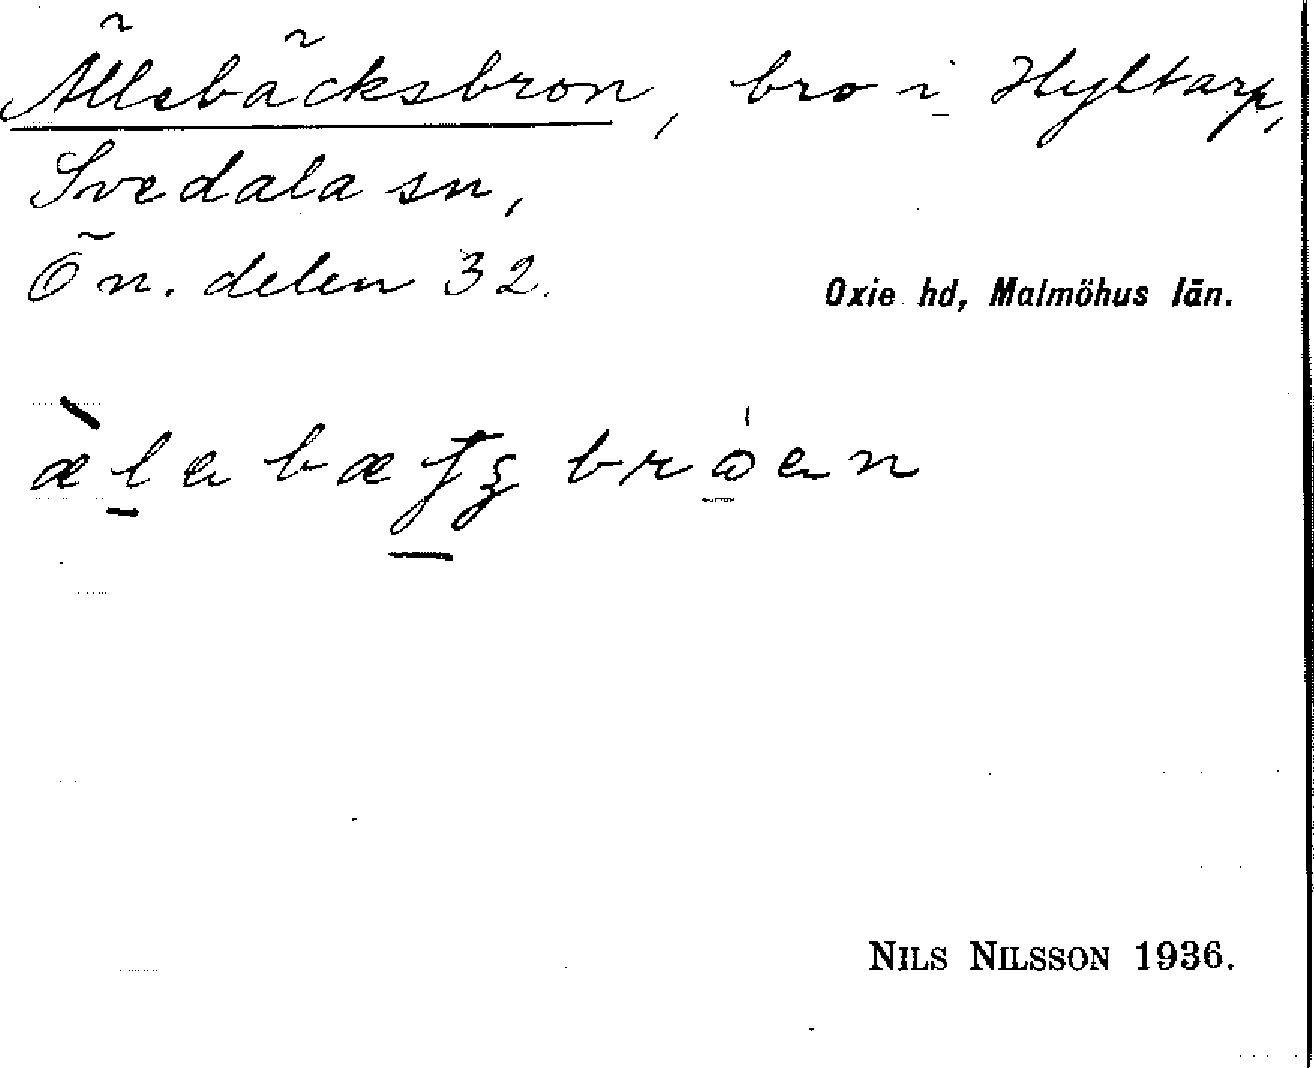 Ällebäcksbron, bro i Hyltarp,
Svedala sn,
Ön. delen 32.
Oxie hd, Malmöhus län.
NILS NILSSON 1936.